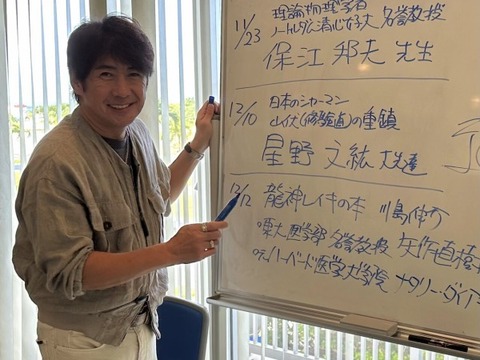 11/23
理論物理学者
ノートルダム清心女子大 名誉教授
保江 邦夫 先生
12/10
日本のシャーマン
山伏(修験道)の重鎮
星野 文紘 大先達
12/12 龍神レイキの本
元東大医学部 名誉教授 矢作直樹
元ハーバード医学大学院 ナタリー・ダイア